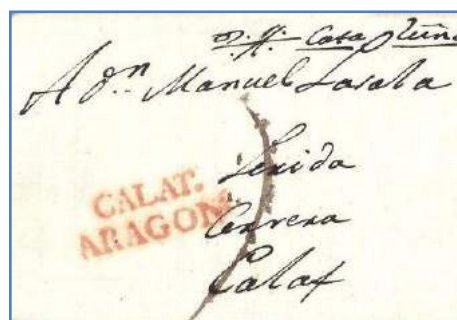 Casa
A dn. Manuel Lasala
Lerida
Cervera
Calaf
CALAT.
ARAGON